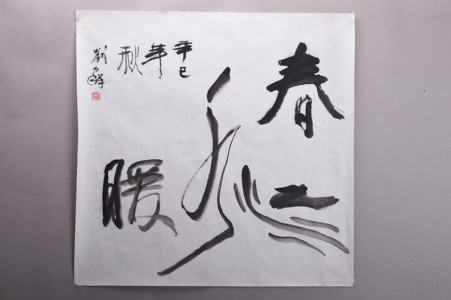 春江
水
暖
辛巳
年
秋
劉